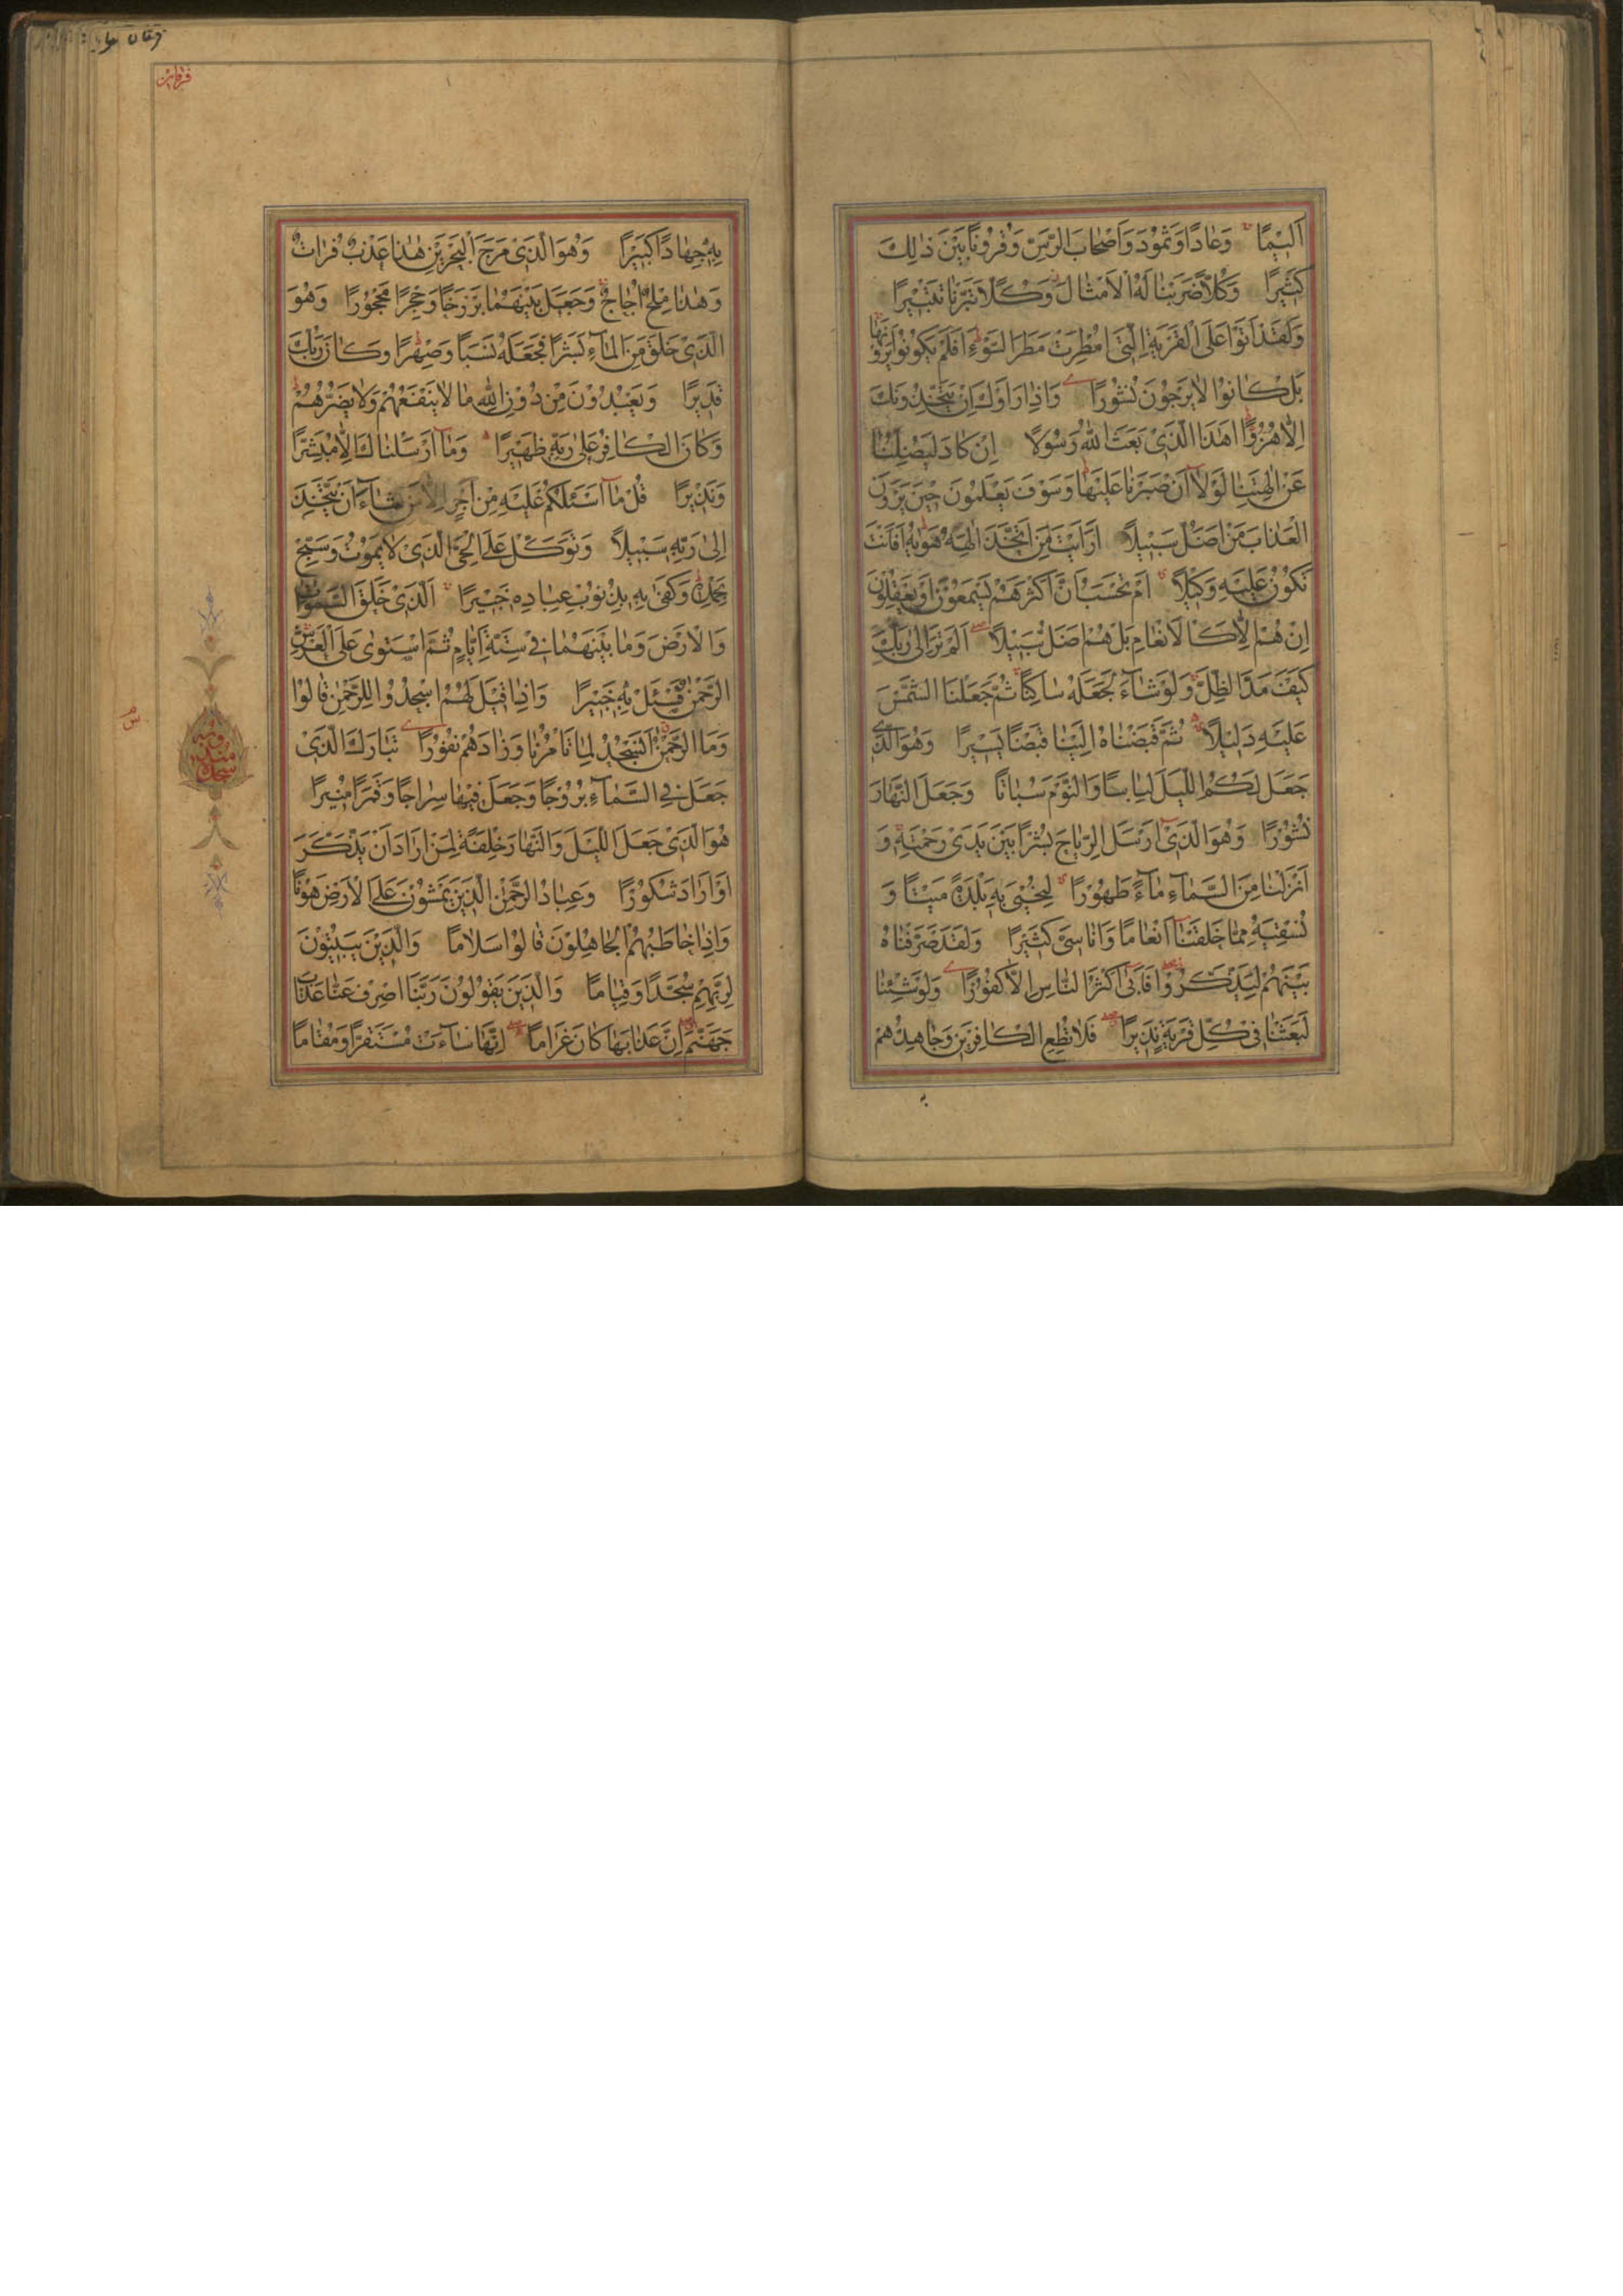 اَلِيْمًا وَعَادًا وَثَمُودَ وَاَصْحَابَ الرَّسِّ وَقُرُونًا بَيْنَ ذٰلِكَ
كَثِيْرًا وَكُلًّا ضَرَبْنَا لَهُ الْاَمْثَالَ وَكُلًّا تَبَّرْنَا تَتْبِيْرًا
وَلَقَدْ اَتَوْا عَلَى الْقَرْيَةِ الَّتِىْ اُمْطِرَتْ مَطَرَ السَّوْءِ اَفَلَمْ يَكُونُوا يَرَوْنَهَا
بَلْ كَانُوْا لَا يَرْجُوْنَ نُشُوْرًا وَاِذَا رَاَوْكَ اِنْ يَتَّخِذُوْنَكَ
اِلَّا هُزُوًا اَهٰذَا الَّذِىْ بَعَثَ اللّٰهُ رَسُوْلًا اِنْ كَادَ لَيُضِلُّنَا
عَنْ اٰلِهَتِنَا لَوْلَا اَنْ صَبَرْنَا عَلَيْهَا وَسَوْفَ يَعْلَمُوْنَ حِيْنَ يَرَوْنَ
الْعَذَابَ مَنْ اَضَلُّ سَبِيْلًا اَرَاَيْتَ مَنِ اتَّخَذَ اِلٰهَهُ هَوٰيهُ اَفَاَنْتَ
تَكُوْنُ عَلَيْهِ وَكِيْلًا اَمْ تَحْسَبُ اَنَّ اَكْثَرَهُمْ يَسْمَعُوْنَ اَوْ يَعْقِلُوْنَ
اِنْ هُمْ اِلَّا كَالْاَنْعَامِ بَلْ هُمْ اَضَلُّ سَبِيْلًا اَلَمْ تَرَ اِلٰى رَبِّكَ
كَيْفَ مَدَّ الظِّلَّ وَلَوْ شَآءَ لَجَعَلَهُ سَاكِنًا ثُمَّ جَعَلْنَا الشَّمْسَ
عَلَيْهِ دَلِيْلًا ثُمَّ قَبَضْنَاهُ اِلَيْنَا قَبْضًا يَسِيْرًا وَهُوَ الَّذِىْ
جَعَلَ لَكُمُ اللَّيْلَ لِبَاسًا وَالنَّوْمَ سُبَاتًا وَجَعَلَ النَّهَارَ
نُشُوْرًا وَهُوَ الَّذِىْ اَرْسَلَ الرِّيَاحَ بُشْرًا بَيْنَ يَدَىْ رَحْمَتِهِ وَ
اَنْزَلْنَا مِنَ السَّمَآءِ مَآءً طَهُوْرًا لِنُحْيِىَ بِهِ بَلْدَةً مَيْتًا وَ
نُسْقِيَهُ مِمَّا خَلَقْنَا اَنْعَامًا وَاَنَاسِىَّ كَثِيْرًا وَلَقَدْ صَرَّفْنَاهُ
بَيْنَهُمْ لِيَذَّكَّرُوْا فَاَبٰى اَكْثَرُ النَّاسِ اِلَّا كُفُوْرًا وَلَوْ شِئْنَا
لَبَعَثْنَا فِىْ كُلِّ قَرْيَةٍ نَذِيْرًا فَلَا تُطِعِ الْكَافِرِيْنَ وَجَاهِدْهُمْ
به
فرقان
بِهِ جِهَادًا كَبِيْرًا وَهُوَ الَّذِىْ مَرَجَ الْبَحْرَيْنِ هٰذَا عَذْبٌ فُرَاتٌ
وَهٰذَا مِلْحٌ اُجَاجٌ وَجَعَلَ بَيْنَهُمَا بَرْزَخًا وَحِجْرًا مَحْجُوْرًا وَهُوَ
الَّذِىْ خَلَقَ مِنَ الْمَآءِ بَشَرًا فَجَعَلَهُ نَسَبًا وَصِهْرًا وَكَانَ رَبُّكَ
قَدِيْرًا وَيَعْبُدُوْنَ مِنْ دُوْنِ اللّٰهِ مَا لَا يَنْفَعُهُمْ وَلَا يَضُرُّهُمْ
وَكَانَ الْكَافِرُ عَلٰى رَبِّهِ ظَهِيْرًا وَمَا اَرْسَلْنَاكَ اِلَّا مُبَشِّرًا
وَنَذِيْرًا قُلْ مَا اَسْئَلُكُمْ عَلَيْهِ مِنْ اَجْرٍ اِلَّا مَنْ شَآءَ اَنْ يَتَّخِذَ
اِلٰى رَبِّهِ سَبِيْلًا وَتَوَكَّلْ عَلَى الْحَىِّ الَّذِىْ لَا يَمُوْتُ وَسَبِّحْ
بِحَمْدِهِ وَكَفٰى بِهِ بِذُنُوْبِ عِبَادِهِ خَبِيْرًا اَلَّذِىْ خَلَقَ السَّمٰوَاتِ
وَالْاَرْضَ وَمَا بَيْنَهُمَا فِىْ سِتَّةِ اَيَّامٍ ثُمَّ اسْتَوٰى عَلَى الْعَرْشِ
الرَّحْمٰنُ فَسْئَلْ بِهِ خَبِيْرًا وَاِذَا قِيْلَ لَهُمُ اسْجُدُوْا لِلرَّحْمٰنِ قَالُوْا
وَمَا الرَّحْمٰنُ اَنَسْجُدُ لِمَا تَاْمُرُنَا وَزَادَهُمْ نُفُوْرًا تَبَارَكَ الَّذِىْ
جَعَلَ فِى السَّمَآءِ بُرُوْجًا وَجَعَلَ فِيْهَا سِرَاجًا وَقَمَرًا مُنِيْرًا
هُوَ الَّذِىْ جَعَلَ اللَّيْلَ وَالنَّهَارَ خِلْفَةً لِمَنْ اَرَادَ اَنْ يَذَّكَّرَ
اَوْ اَرَادَ شُكُوْرًا وَعِبَادُ الرَّحْمٰنِ الَّذِيْنَ يَمْشُوْنَ عَلَى الْاَرْضِ هَوْنًا
وَاِذَا خَاطَبَهُمُ الْجَاهِلُوْنَ قَالُوْا سَلَامًا وَالَّذِيْنَ يَبِيْتُوْنَ
لِرَبِّهِمْ سُجَّدًا وَقِيَامًا وَالَّذِيْنَ يَقُوْلُوْنَ رَبَّنَا اصْرِفْ عَنَّا عَذَابَ
جَهَنَّمَ اِنَّ عَذَابَهَا كَانَ غَرَامًا اِنَّهَا سَآءَتْ مُسْتَقَرًّا وَمُقَامًا